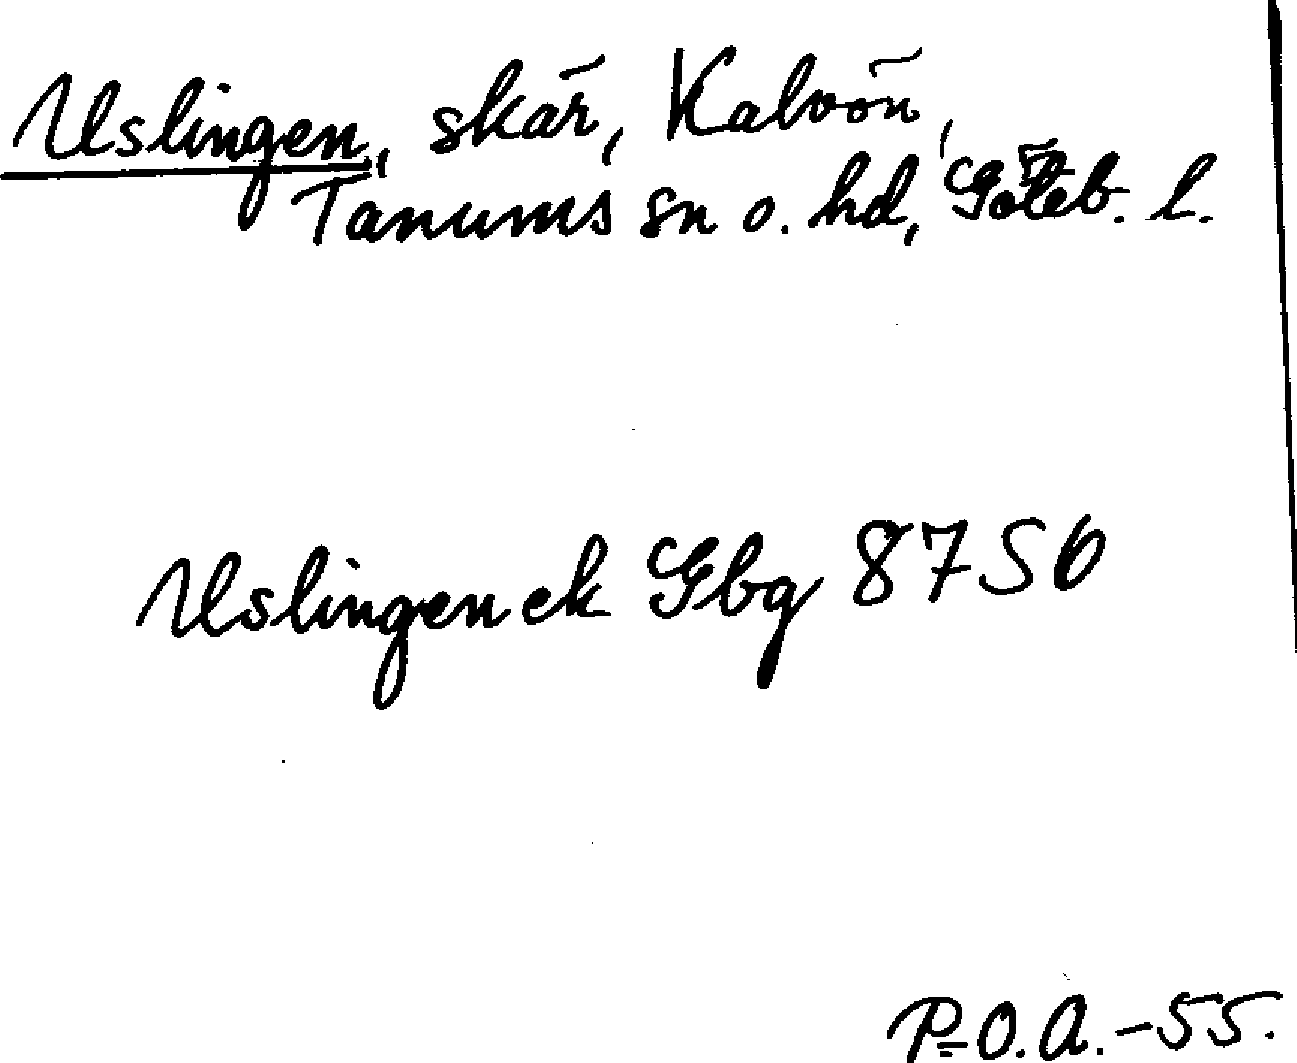 Uslingen, skär, Kalvön,
Tanums sn o. hd, Göteb. l.
Uslingen ek Gbg 8750
P.O.A.-55.